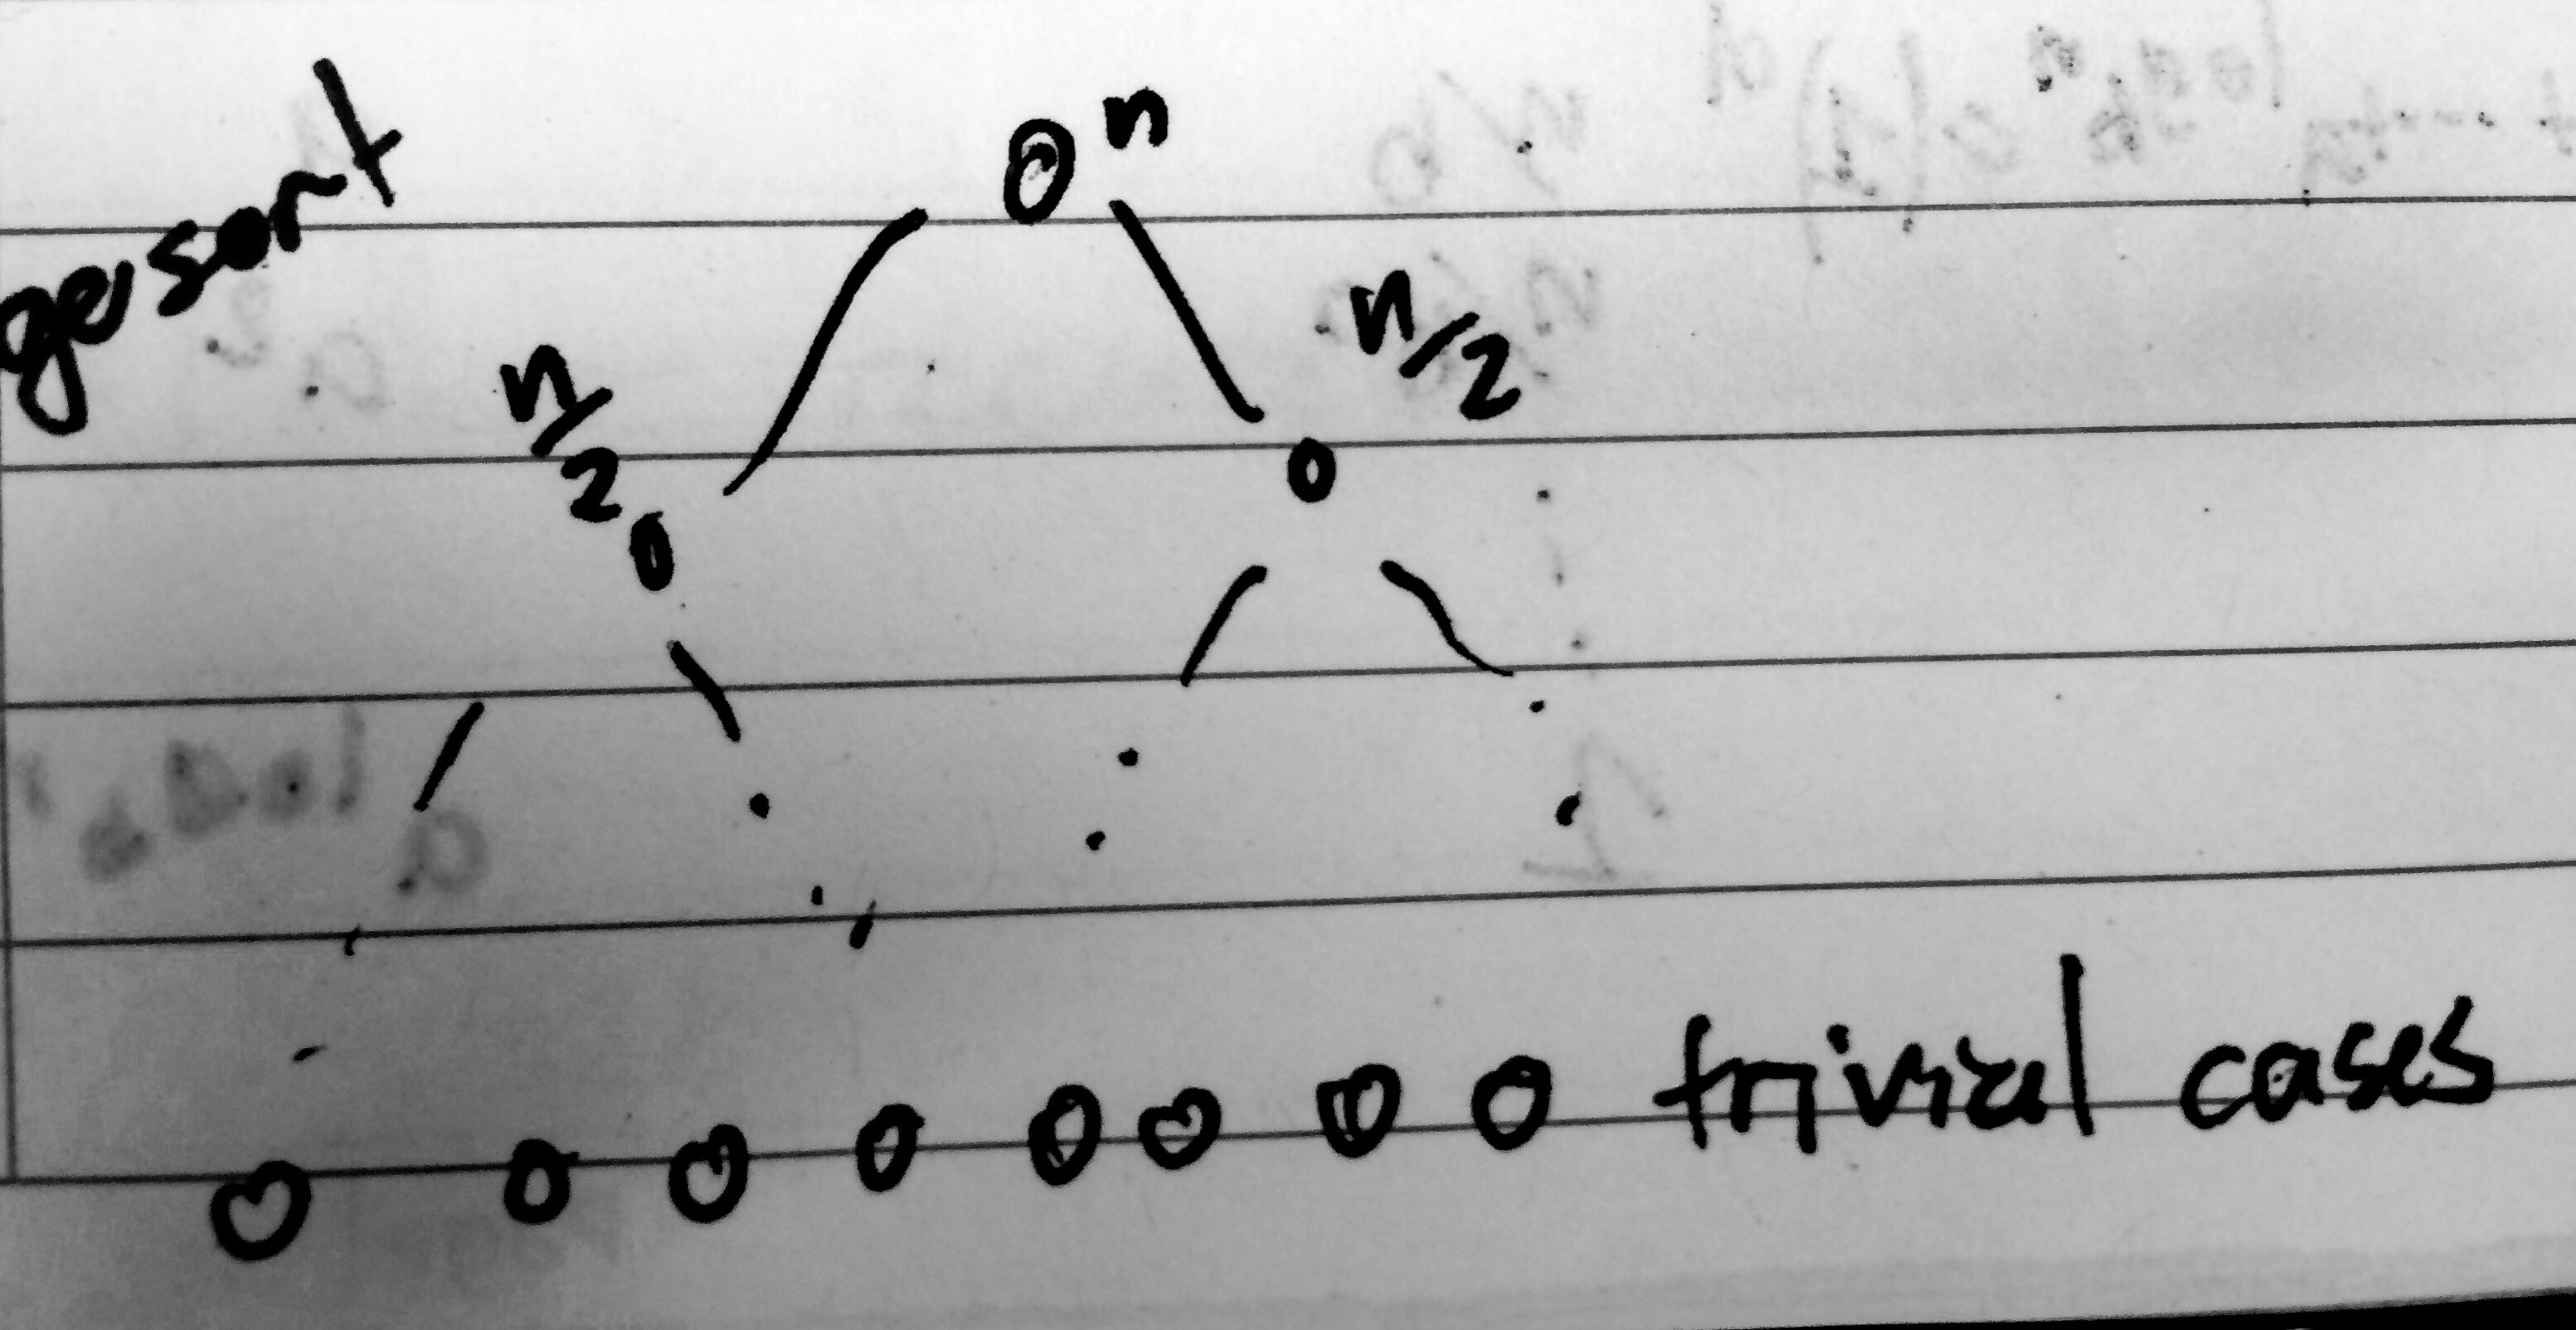 gesort
n
n/2
n/2
trivial cases